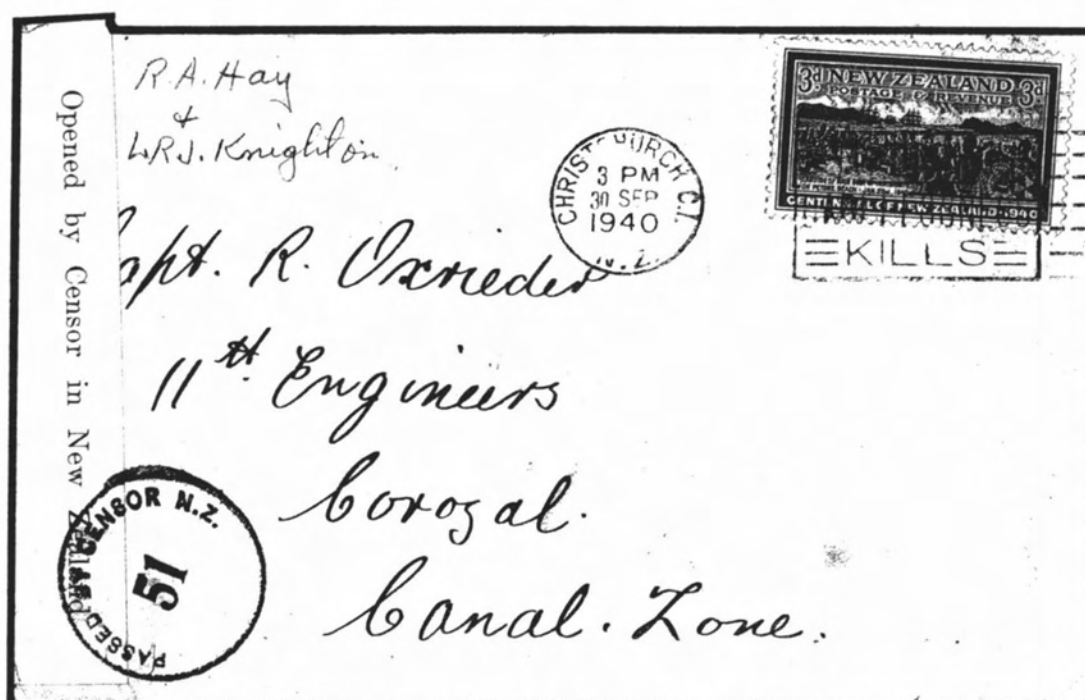 R. A. Hay
&
L.R.J. Knighton
Opened by Censor in New Zealand
CHRISTCHURCH C.1.
3 PM
30 SEP
1940
N.Z.
3d NEW ZEALAND 3d
POSTAGE & REVENUE
CENTENNIAL OF NEW ZEALAND 1940
KILLS
Capt. R. Oxrieder
11th Engineers
Corozal.
Canal. Zone.
PASSED BY CENSOR N.Z.
51